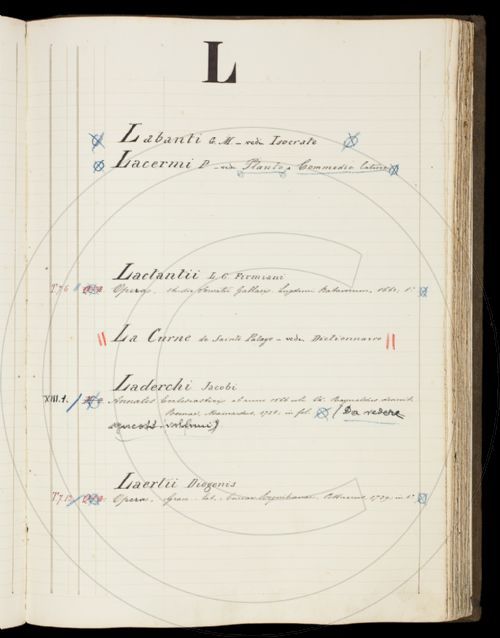 L
Labanti G. M - vedi Isocrate
Lacermi P - vedi Plauto, Commedie latine
Lactantii L. C. Firmiani
T 7 6 Opera, studio Servatii Gallaei, Lugduni Batavorum, 1660, 8°
La Curne de Sainte Palaye - vedi Dictionnaire
Laderchi Jacobi
XIII. 1. Annales Ecclesiastici ab anno 1566 ubi Od. Raynaldus desinit.
Romae, Mainardus, 1728, in fol. (Da vedere
questi volumi)
Laertii Diogenis
T 7. 17 Opera, Graec. lat. Curiae Regnitianae, 1739, in 8°